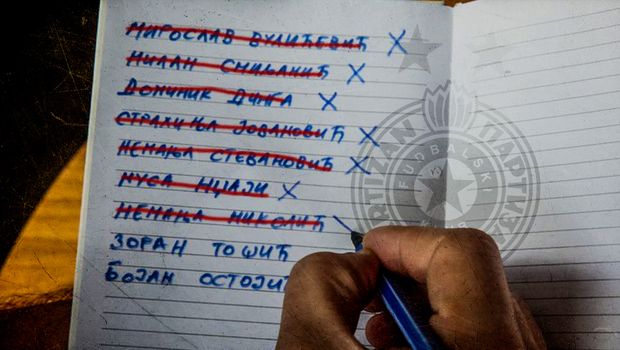 МИРОСЛАВ ВУЛИЋЕВИЋ
МИЛАН СМИЉАНИЋ
ДОМИНИК ДИНГА
СТРАХИЊА ЈОВАНОВИЋ
НЕМАЊА СТЕВАНОВИЋ
МУСА
НЕМАЊА НИКОЛИЋ
ЗОРАН ТОШИЋ
БОЈАН ОСТОЈИЋ
FUDBALSKI
PARTIZAN ПАРТИЗАН